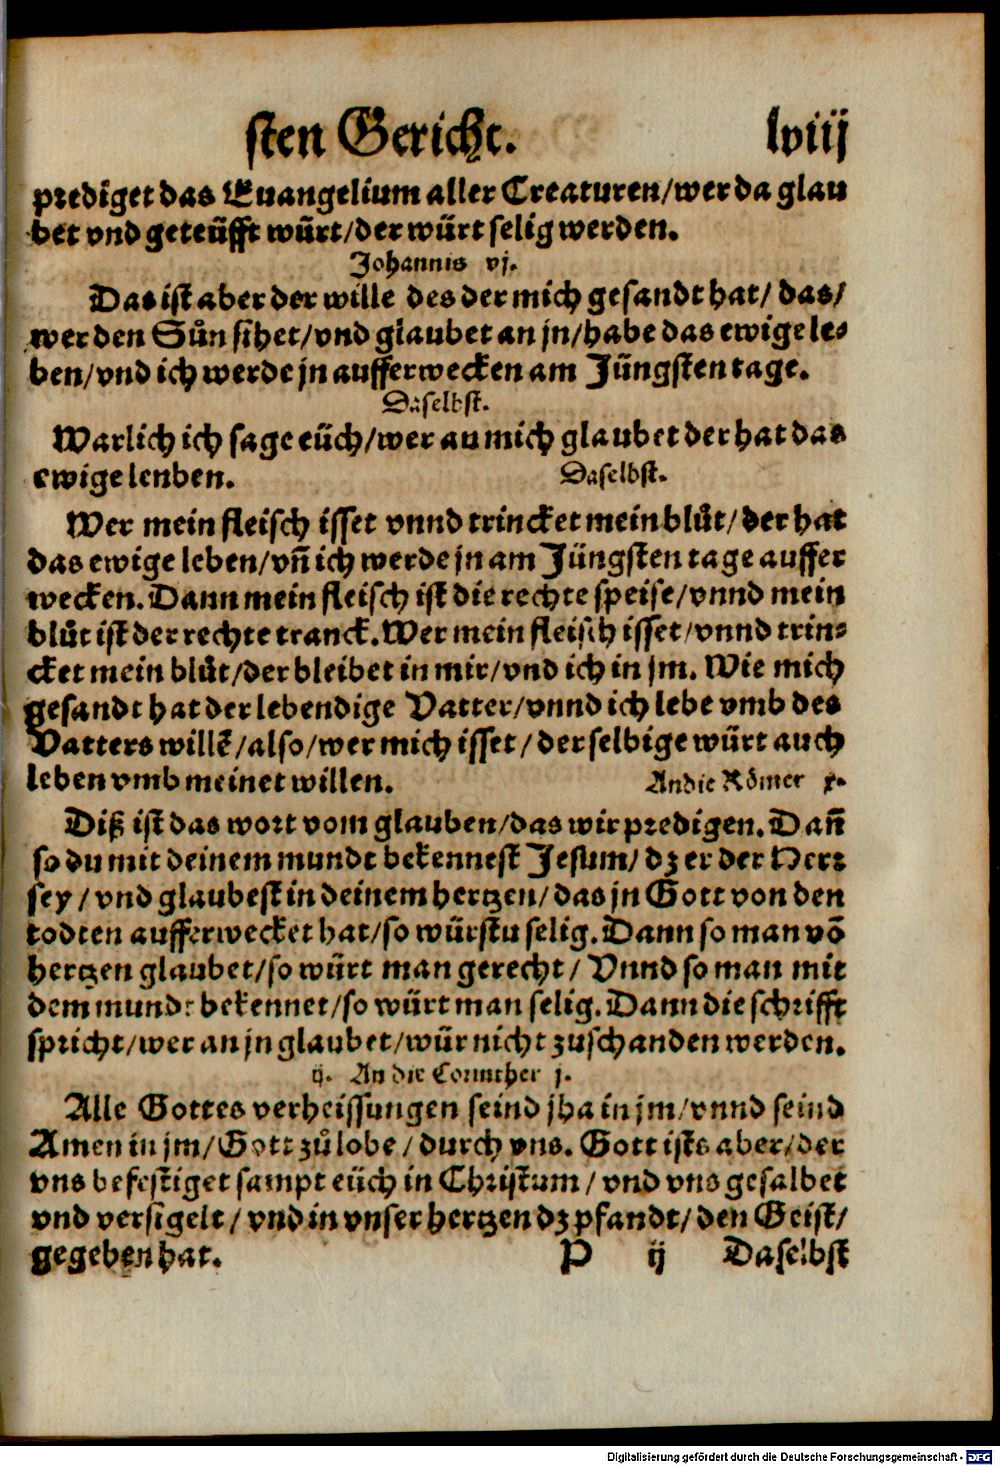 sten Gericht. lviij
prediget das Euangelium aller Creaturen/wer da glau
bet vnd geteüfft würt/der würt selig werden.
Johannis vj.
Das ist aber der wille des der mich gesandt hat/ das/
wer den Sůn sihet/vnd glaubet an jn/habe das ewige le-
ben/vnd ich werde jn aufferwecken am Jüngsten tage.
Daselbst.
Warlich ich sage eüch/wer au mich glaubet der hat das
ewige lenben. Daselbst.
Wer mein fleisch isset vnnd trincket mein blůt/der hat
das ewige leben/vñ ich werde jn am Jüngsten tage auffer
wecken. Dann mein fleisch ist die rechte speise/vnnd mein
blůt ist der rechte tranck. Wer mein fleisch isset/vnnd trin-
cket mein blůt/der bleibet in mir/vnd ich in jm. Wie mich
gesandt hat der lebendige Vatter/vnnd ich lebe vmb des
Vatters willẽ/also/wer mich isset/derselbige würt auch
leben vmb meinet willen. An die Römer x.
Diß ist das wort vom glauben/das wir predigen. Dañ
so du mit deinem mundt bekennest Jesum/dz er der Herr
sey/vnd glaubest in deinem hertzen/das jn Gott von den
todten aufferwecket hat/so würstu selig. Dann so man võ
hertzen glaubet/so würt man gerecht/ Vnnd so man mit
dem mundt bekennet/so würt man selig. Dann die schrifft
spricht/wer an jn glaubet/wür nicht zuschanden werden.
ij. An die Corinther j.
Alle Gottes verheissungen seind jha in jm/vnnd seind
Amen in jm/Gott zů lobe/durch vns. Gott ists aber/der
vns befestiget sampt eüch in Christum/vnd vns gesalbet
vnd versigelt/vnd in vnser hertzen dz pfandt/den Geist/
gegeben hat. P ij Daselbst
Digitalisierung gefördert durch die Deutsche Forschungsgemeinschaft - DFG